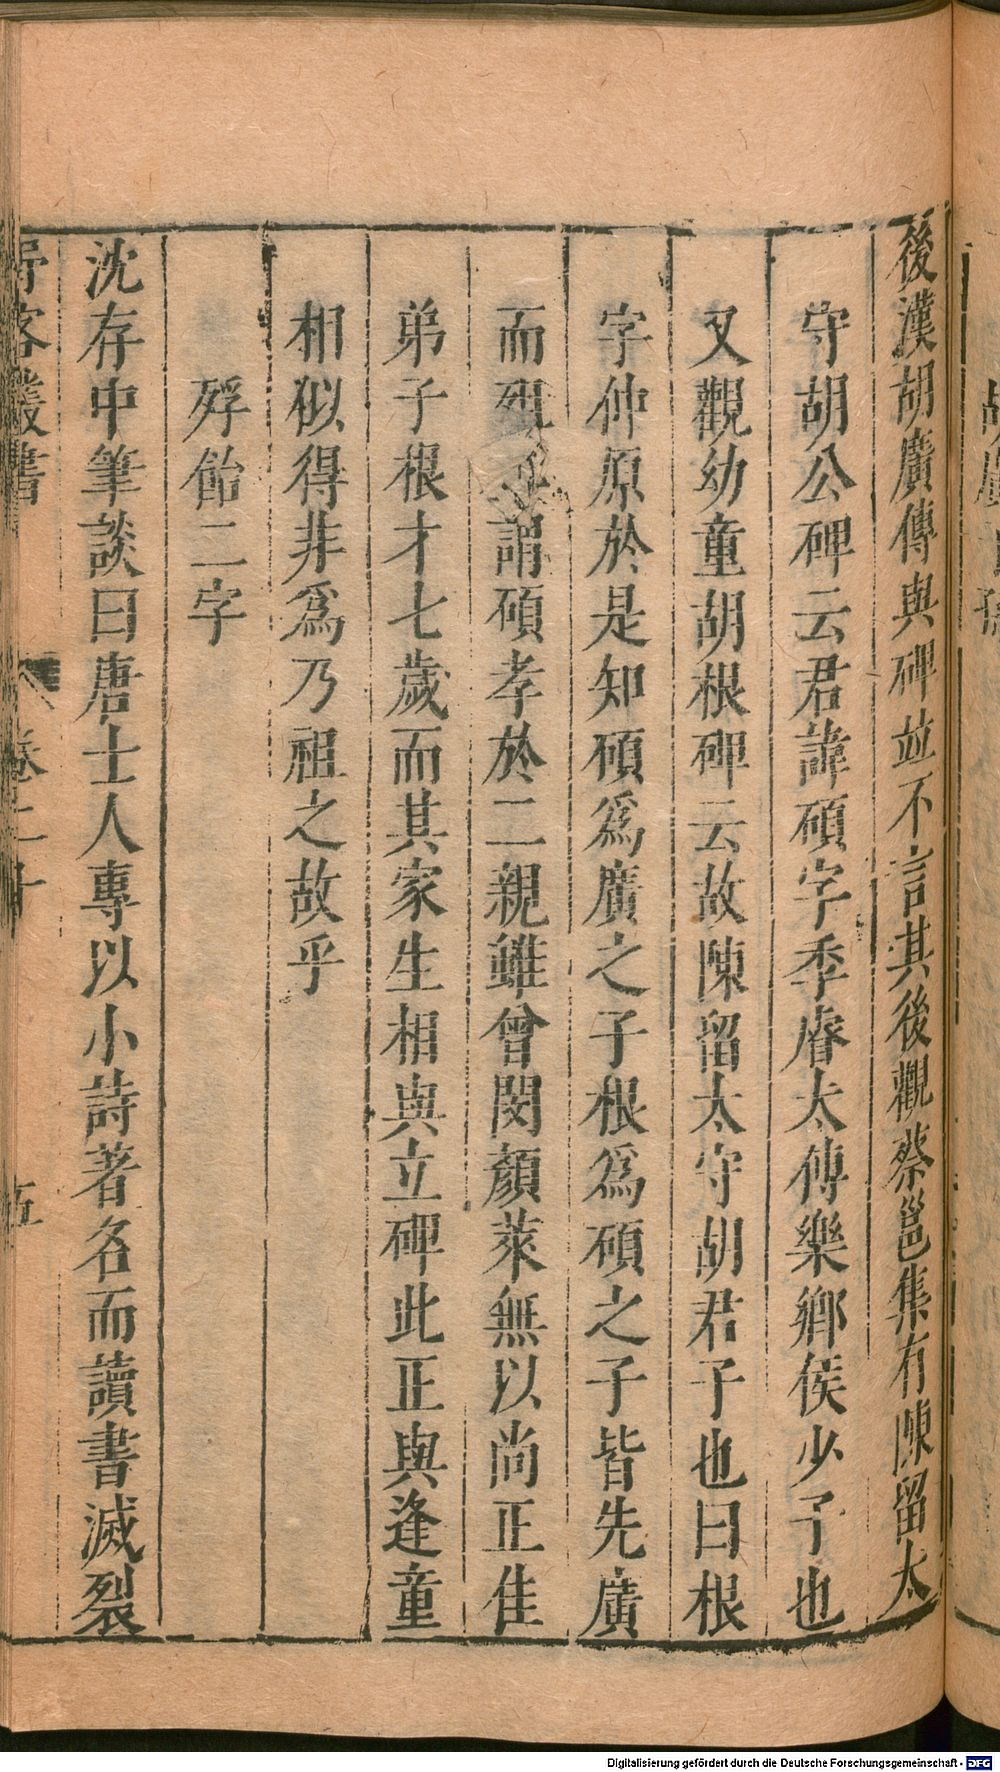 後漢胡廣傳與碑並不言其後觀蔡邕集有陳留太
守胡公碑云君諱碩字季睿太傅樂鄉侯少子也
又觀幼童胡根碑云故陳留太守胡君子也曰根
字仲原於是知碩為廣之子根為碩之子皆先廣
而歿謂碩孝於二親雖曾閔顏萊無以尚正隹
弟子根才七歲而其家生相與立碑此正與逢童
相似得非為乃祖之故乎
殍飴二字
沈存中筆談曰唐士人專以小詩著名而讀書滅裂
客叢書 卷二十 五
Digitalisierung gefördert durch die Deutsche Forschungsgemeinschaft - DFG